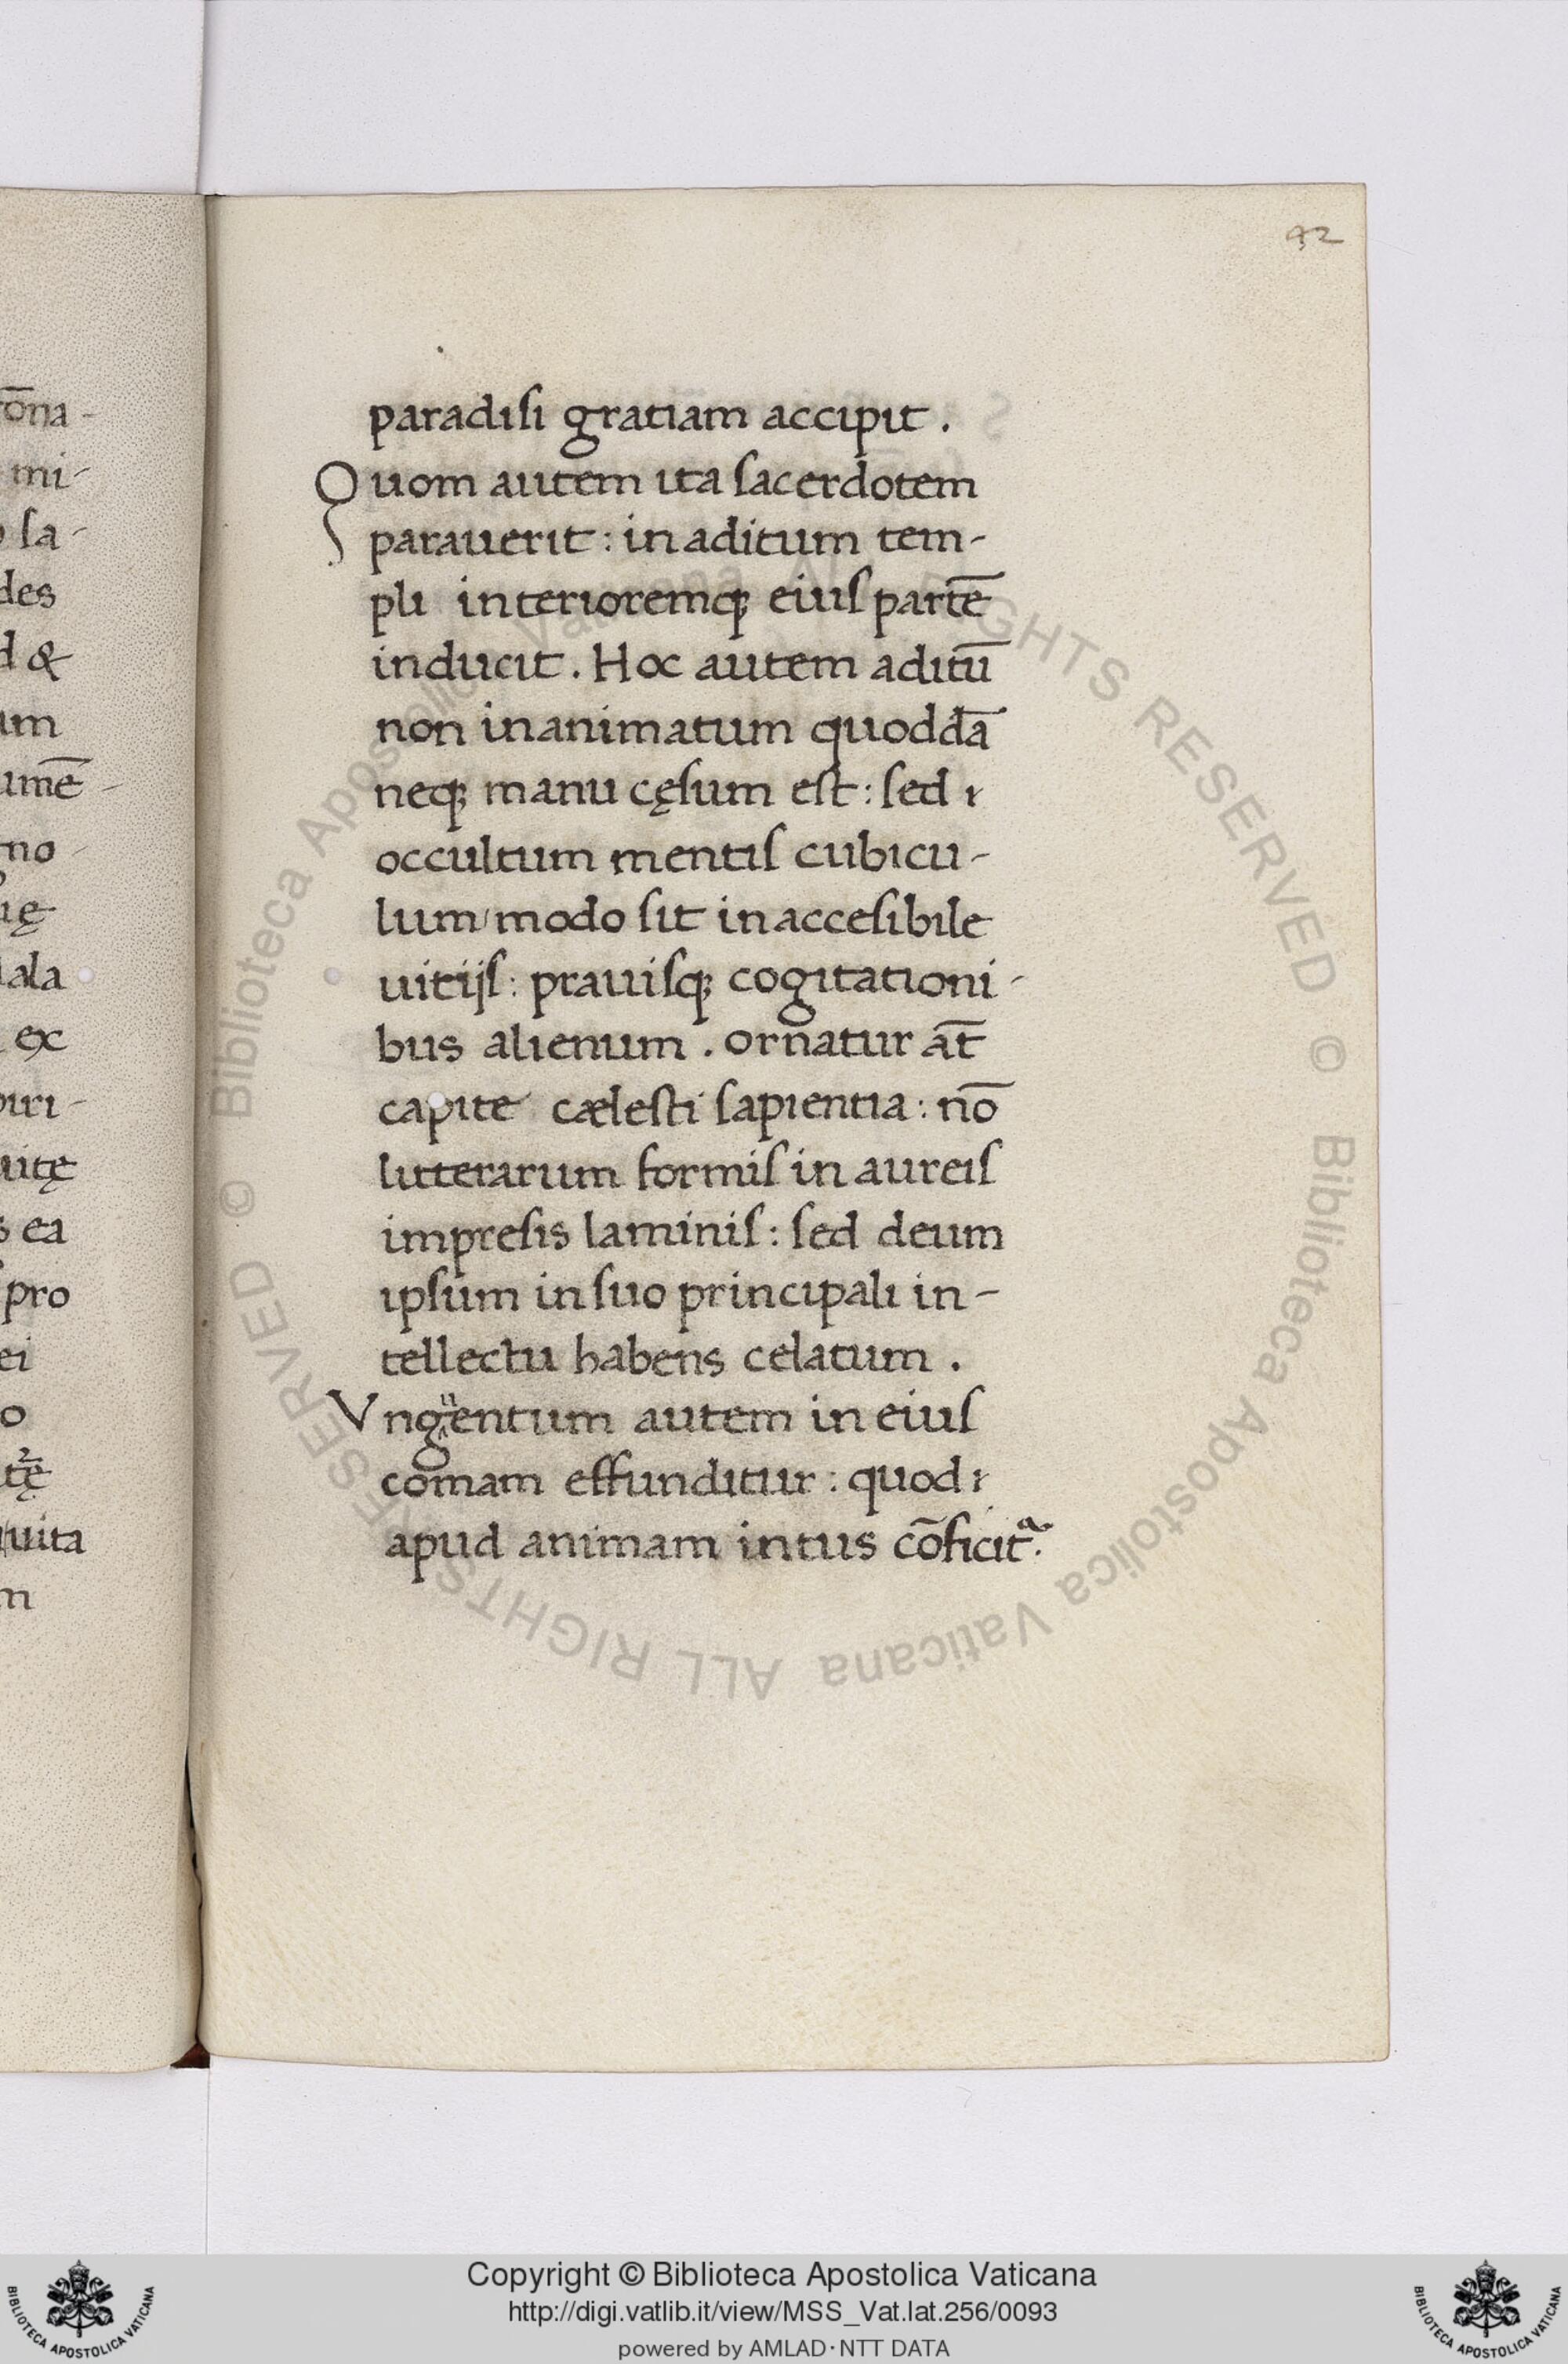 42
paradisi gratiam accipit.
Quom autem ita sacerdotem
parauerit: in aditum tem-
pli interioremq; eius partē
inducit. Hoc autem aditū
non inanimatum quoddā
neq; manu cęsum est: sed
occultum mentis cubicu-
lum modo sit inaccesibile
uitijs: prauisq; cogitationi-
bus alienum. ornatur āt
capite cælesti sapientia: nō
litterarum formis in aureis
impresis laminis: sed deum
ipsum in suo principali in-
tellectu habens celatum.
Vnguentum autem in eius
comam effunditur: quod
apud animam intus cōficit.
ōna-
mi-
sa-
des
d &
um
umē-
no-
ię
ala
ex
piri-
uitę
s ea
pro
ei
o
tę
uita
m
© Biblioteca Apostolica Vaticana ALL RIGHTS RESERVED © Biblioteca Apostolica Vaticana ALL RIGHTS RESERVED
Copyright © Biblioteca Apostolica Vaticana
http://digi.vatlib.it/view/MSS_Vat.lat.256/0093
powered by AMLAD·NTT DATA
BIBLIOTECA APOSTOLICA VATICANA
BIBLIOTECA APOSTOLICA VATICANA